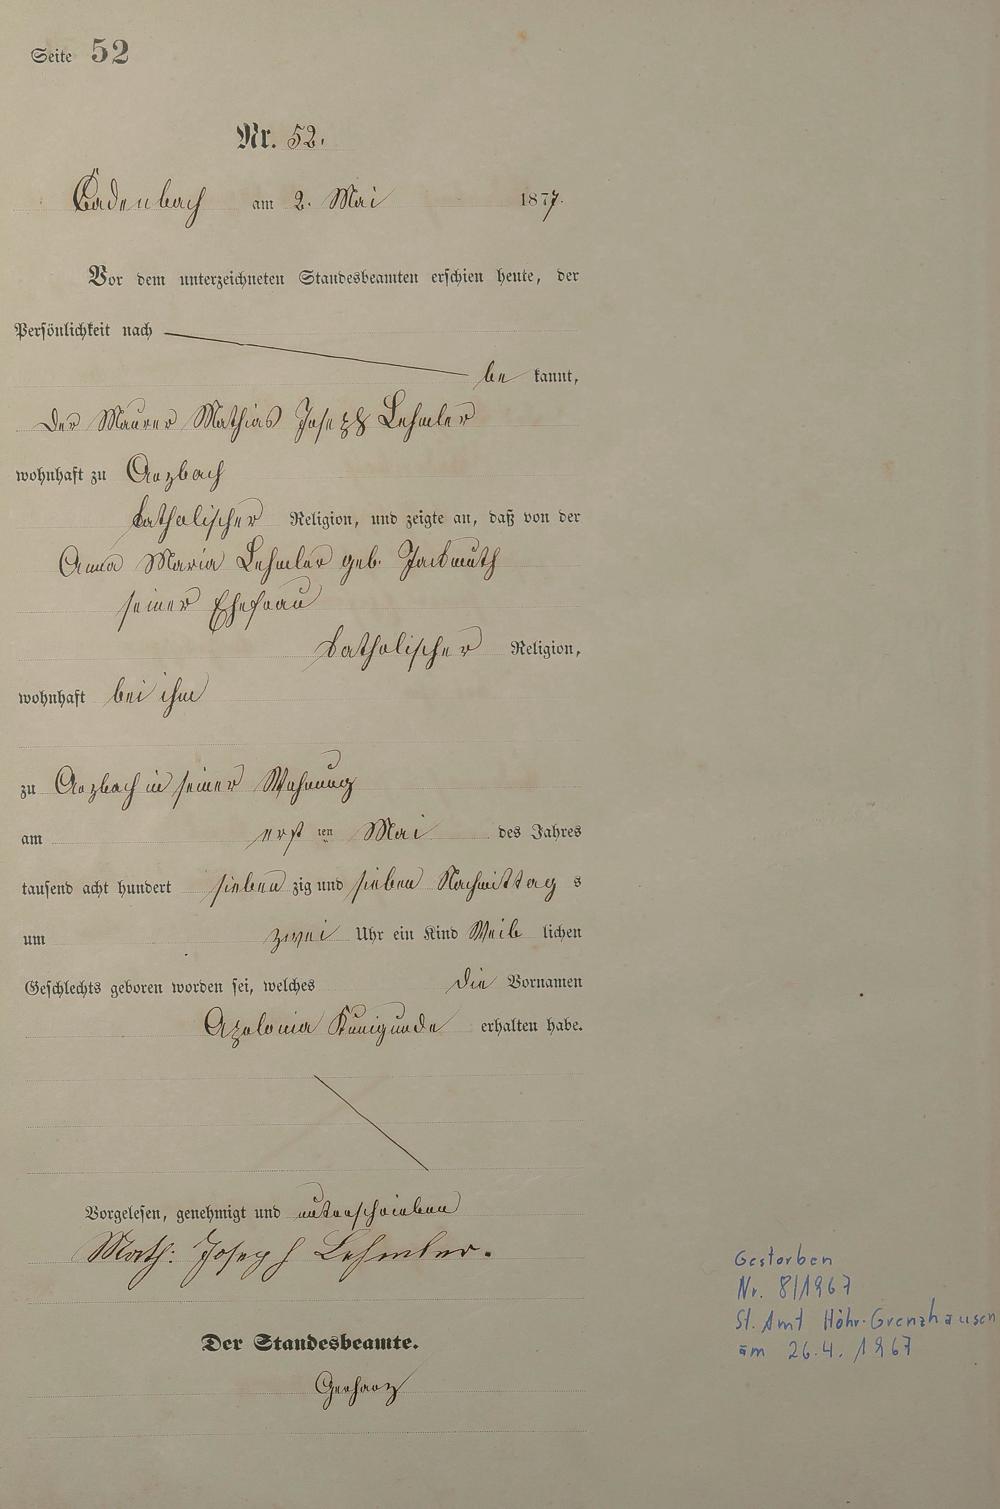 Seite 52
Nr. 52.
Cadenbach am 2. Mai 1877.
Vor dem unterzeichneten Standesbeamten erschien heute, der
Persönlichkeit nach
be kannt,
der Maurer Mathias Joseph Lehmler
wohnhaft zu Arzbach
katholischer Religion, und zeigte an, daß von der
Anna Maria Lehmler geb. Jackmuth
seiner Ehefrau
katholischer Religion,
wohnhaft bei ihm
zu Arzbach in seiner Wohnung
am erst ten Mai des Jahres
tausend acht hundert sieben zig und sieben Nachmittag s
um zwei Uhr ein Kind Weib lichen
Geschlechts geboren worden sei, welches die Vornamen
Apolonia Kunigunde erhalten habe.
Vorgelesen, genehmigt und unterschrieben
Math: Joseph Lehmler.
Der Standesbeamte.
Gerharz
Gestorben
Nr. 8/1967
St. Amt Höhr-Grenzhausen
am 26.4. 1967